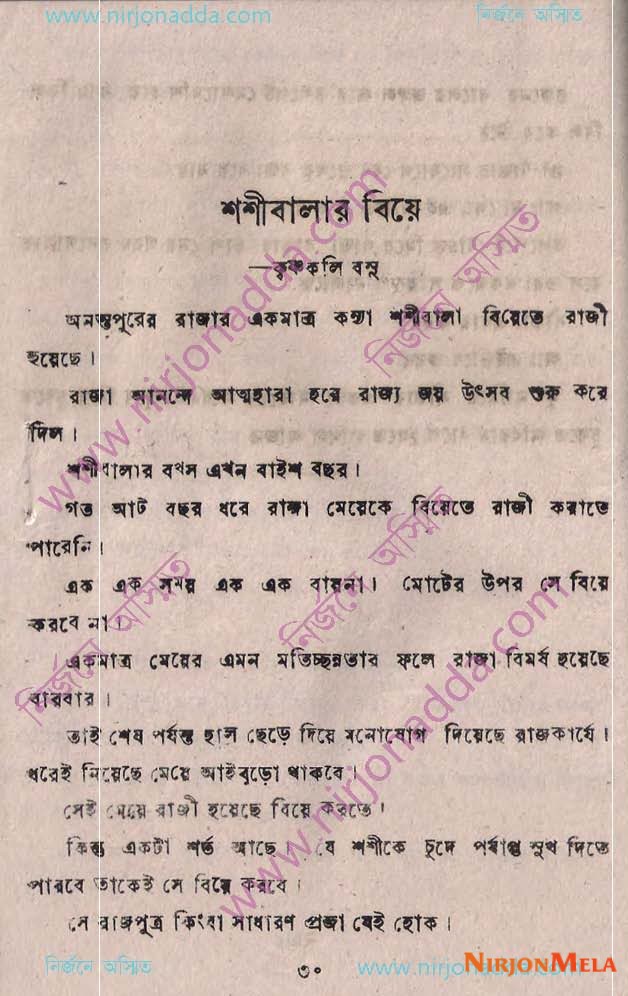 www.nirjonadda.com নির্জনে অস্মিত
শশীবালার বিয়ে
—কৃষ্ণকলি বসু
অনন্তপুরের রাজার একমাত্র কন্যা শশীবালা বিয়েতে রাজী
হয়েছে।
রাজা আনন্দে আত্মহারা হরে রাজ্য জয় উৎসব শুরু করে
দিল।
শশীবালার বয়স এখন বাইশ বছর।
গত আট বছর ধরে রাজা মেয়েকে বিয়েতে রাজী করাতে
পারেনি।
এক এক সময় এক এক বায়না। মোটের উপর সে বিয়ে
করবে না।
একমাত্র মেয়ের এমন মতিচ্ছন্নতার ফলে রাজা বিমর্ষ হয়েছে
বারবার।
তাই শেষ পর্যন্ত হাল ছেড়ে দিয়ে মনোযোগ দিয়েছে রাজকার্যে।
ধরেই নিয়েছে মেয়ে আইবুড়ো থাকবে।
সেই মেয়ে রাজী হয়েছে বিয়ে করতে।
কিন্তু একটা শর্ত আছে। যে শশীকে চুদে পর্যাপ্ত সুখ দিতে
পারবে তাকেই সে বিয়ে করবে।
সে রাজপুত্র কিংবা সাধারণ প্রজা যেই হোক।
৩০
নির্জনে অস্মিত www.nirjonadda.com
NIRJONMELA
www.nirjonadda.com
নির্জনে অস্মিত
www.nirjonadda.com
নির্জনে অস্মিত
নির্জনে অস্মিত